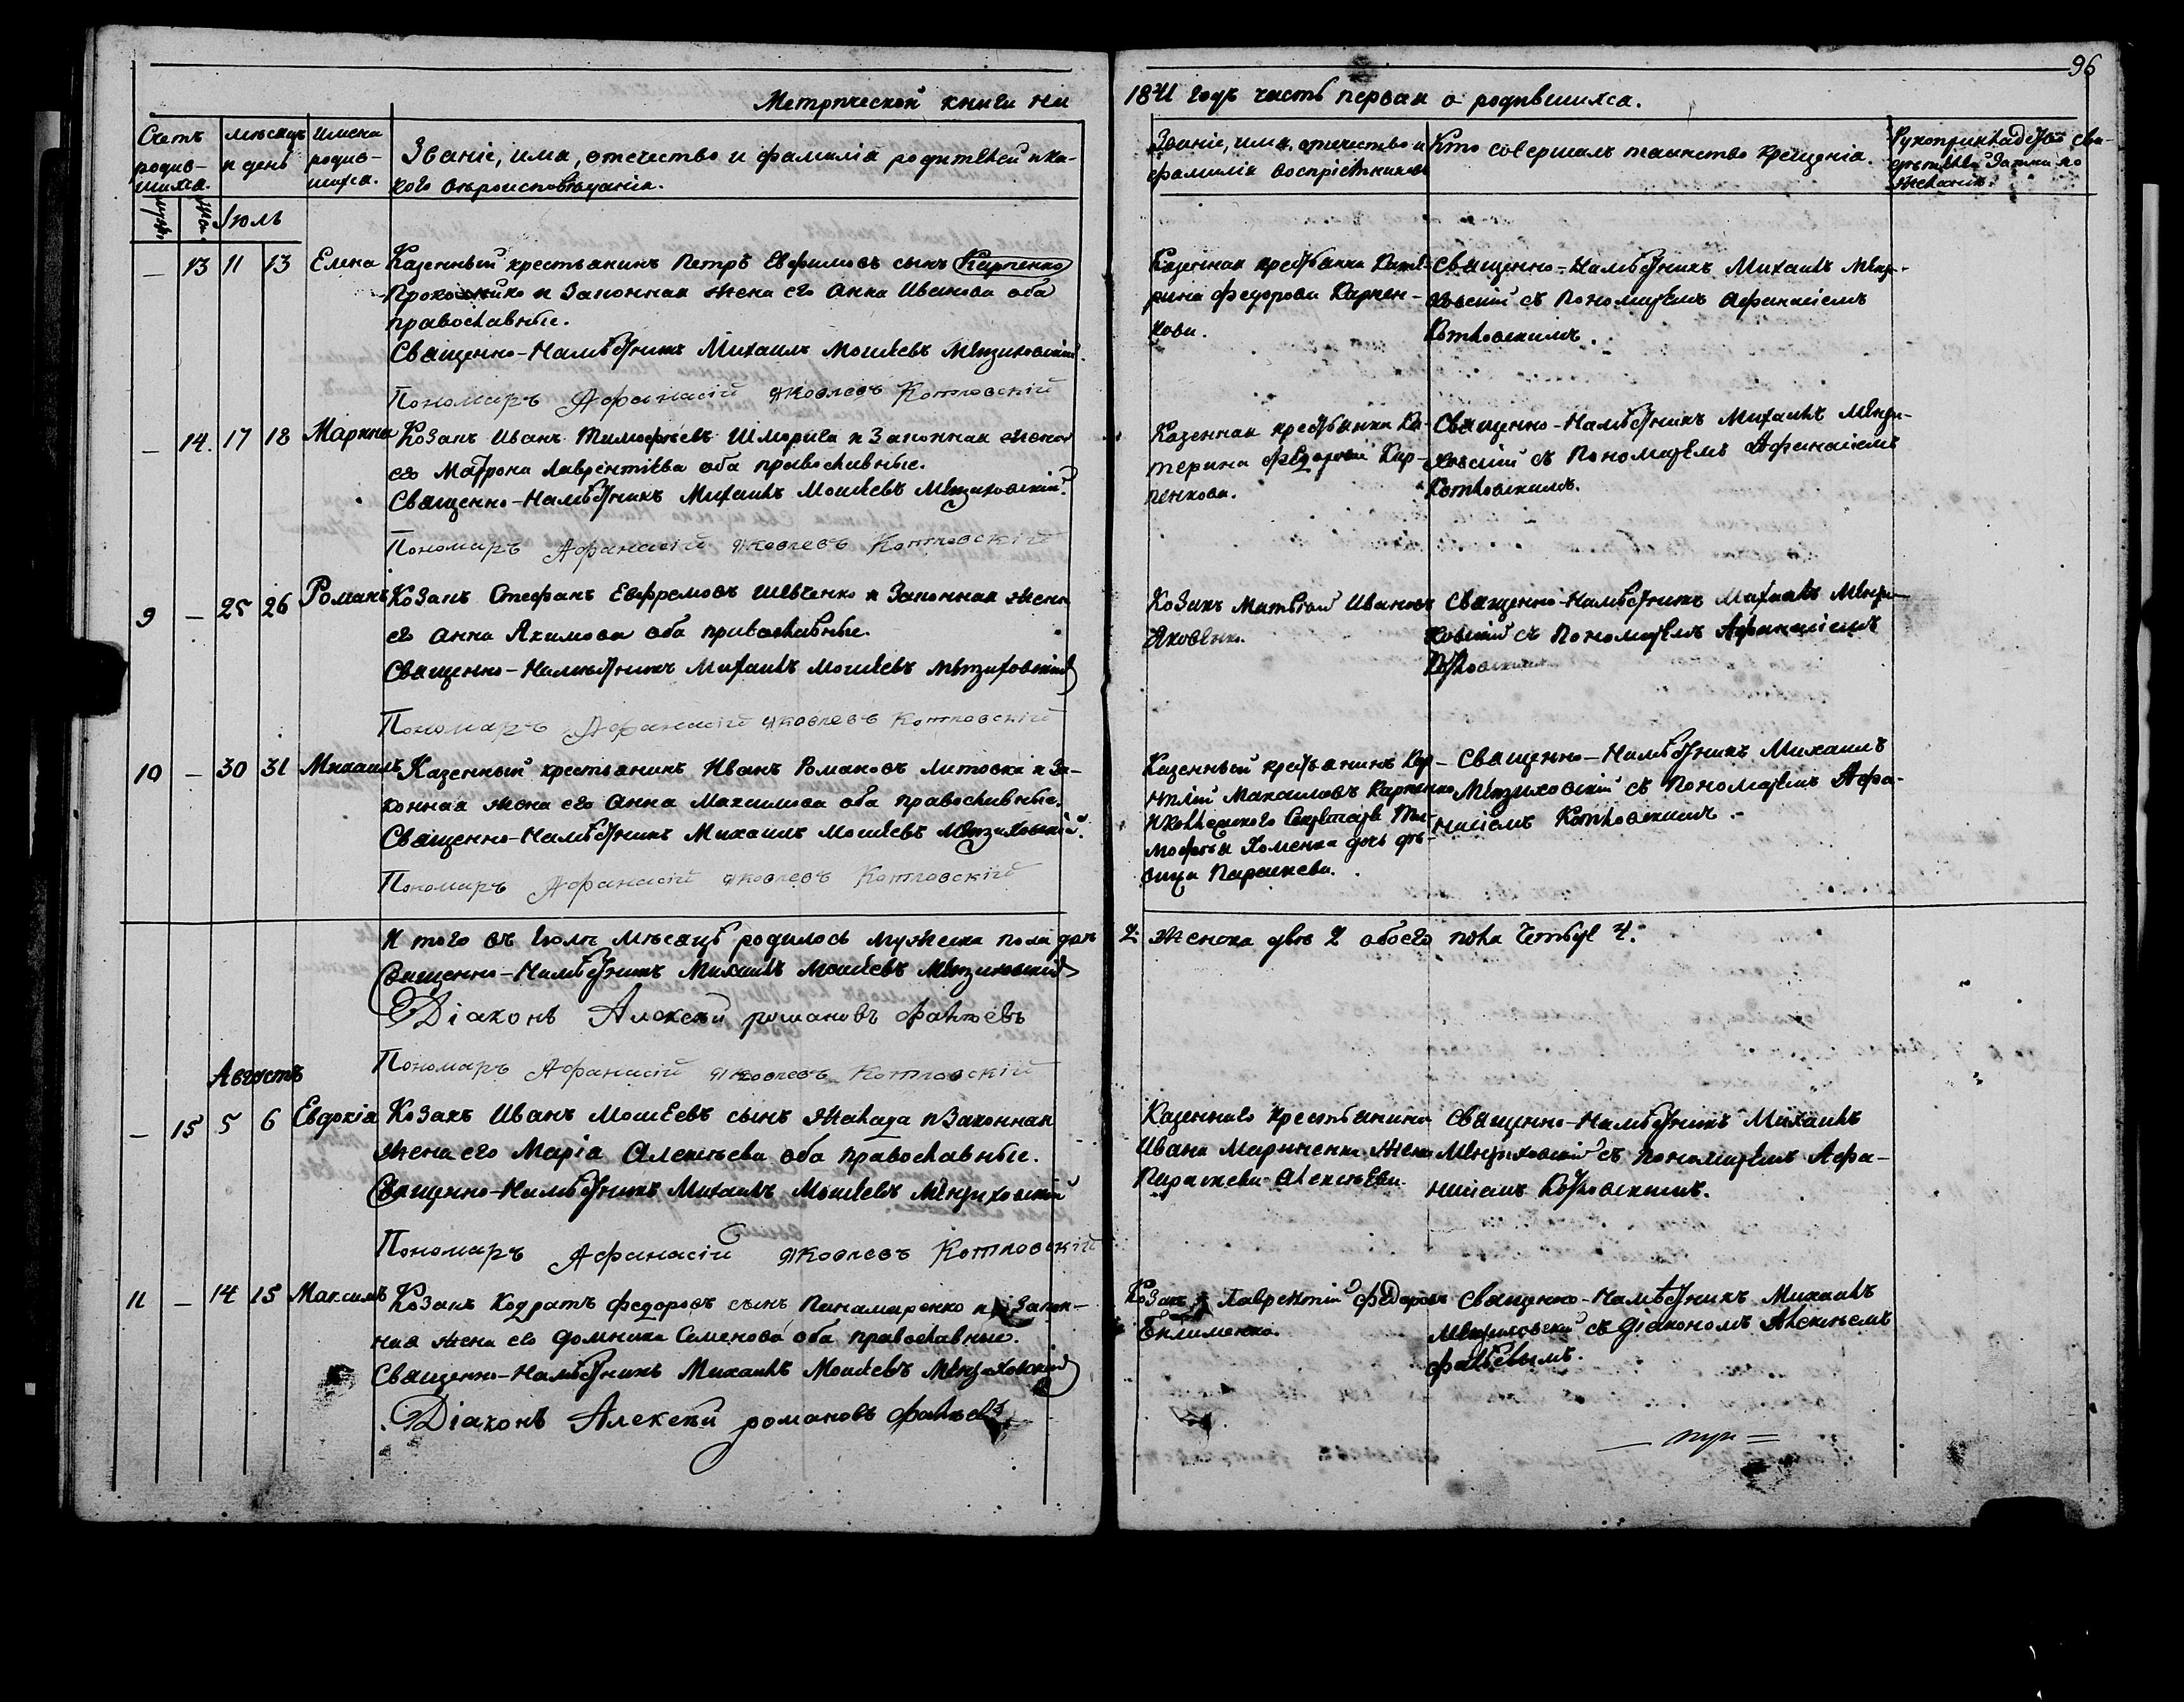 96
Метрической книги на 1841 годъ часть первая о родившихся.
Счетъ родив-шихся.
мѣсяцъ и день
имена родив-шихся.
Званіе, имя, отечество и фамилія родителей и ка-
кого вѣроисповѣданія.
Званіе, имя, отечество и
фамилія воспріемниковъ
Кто совершалъ таинство крещенія.
Рукоприкладство сви-
дѣтелей записи по
желанію.
муж.
жен.
Іюль
— 13 11 13 Елена Казенный крестьянинъ Петръ Евфимовъ сынъ Карпенко
и законная жена его Анна Иванова оба
православные.
Священно-Намѣстникъ Михаилъ Моисеевъ Мензиховскій.
Пономаръ Афанасій Яковлевъ Котловскій
Казенная крестьянка Кате-
рина Федорова Карпен-
кова.
Священно-Намѣстникъ Михаилъ Мензи-
ховскій съ Пономаремъ Афанасіемъ
Котловскимъ.
— 14. 17 18 Марина Козакъ Иванъ Тимофѣевъ Шморгса и законная жена
его Матрона Лаврентіева оба православные.
Священно-Намѣстникъ Михаилъ Моисеевъ Мензиховскій.
Пономаръ Афанасій Яковлевъ Котловскій
Казенная крестьянка Ка-
терина Федорова Кар-
пенкова.
Священно-Намѣстникъ Михаилъ Мензи-
ховскій съ Пономаремъ Афанасіемъ
Котловскимъ.
9 — 25 26 Романъ Козакъ Стефанъ Евфремовъ Шевченко и законная жена
его Анна Якимова оба православные.
Священно-Намѣстникъ Михаилъ Моисеевъ Мензиховскій
Пономаръ Афанасій Яковлевъ Котловскій
Козакъ Матвій Ивановъ
Яковенко.
Священно-Намѣстникъ Михаилъ Мензи-
ховскій съ Пономаремъ Афанасіемъ
Котловскимъ
10 — 30 31 Михаилъ Казенный крестьянинъ Иванъ Романовъ Литовка и за-
конная жена его Анна Максимова оба православные.
Священно-Намѣстникъ Михаилъ Моисеевъ Мензиховскій.
Пономаръ Афанасій Яковлевъ Котловскій
Казенный крестьянинъ Кор-
нилій Максимовъ Карпенко
и Коллежского Секретаря Ти-
мофѣя Хоменка дочь дѣ-
вица Параскева.
Священно-Намѣстникъ Михаилъ
Мензиховскій съ Пономаремъ Афа-
насіемъ Котловскимъ.
И того въ Іюлѣ мѣсяцѣ родилось мужеска пола два 2. женска двѣ 2 обоего пола четыре 4.
Священно-Намѣстникъ Михаилъ Моисеевъ Мензиховскій
Діаконъ Алексѣй романовъ
Пономаръ Афанасій Яковлевъ Котловскій
Августъ
— 15 5 6 Евдокія Козакъ Иванъ Моисеевъ сынъ и законная
жена его Марія Алексѣева оба православные.
Священно-Намѣстникъ Михаилъ Моисеевъ Мензиховскій
Пономаръ Афанасій Яковлевъ Котловскій
Казенного крестьянина
Ивана Мариченка жена
Параскева Алексѣева.
Священно-Намѣстникъ Михаилъ
Мензиховскій съ Пономаремъ Афа-
насіемъ Котловскимъ.
11 — 14 15 Максимъ Козакъ Кодратъ Федоровъ сынъ Панамаренко и закон-
ная жена его Домника Семенова оба православные.
Священно-Намѣстникъ Михаилъ Моисеевъ Мензиховскій
Діаконъ Алексѣй романовъ
Козакъ Лаврентій Федоровъ
Священно-Намѣстникъ Михаилъ
Мензиховскій съ Діакономъ Алексѣемъ